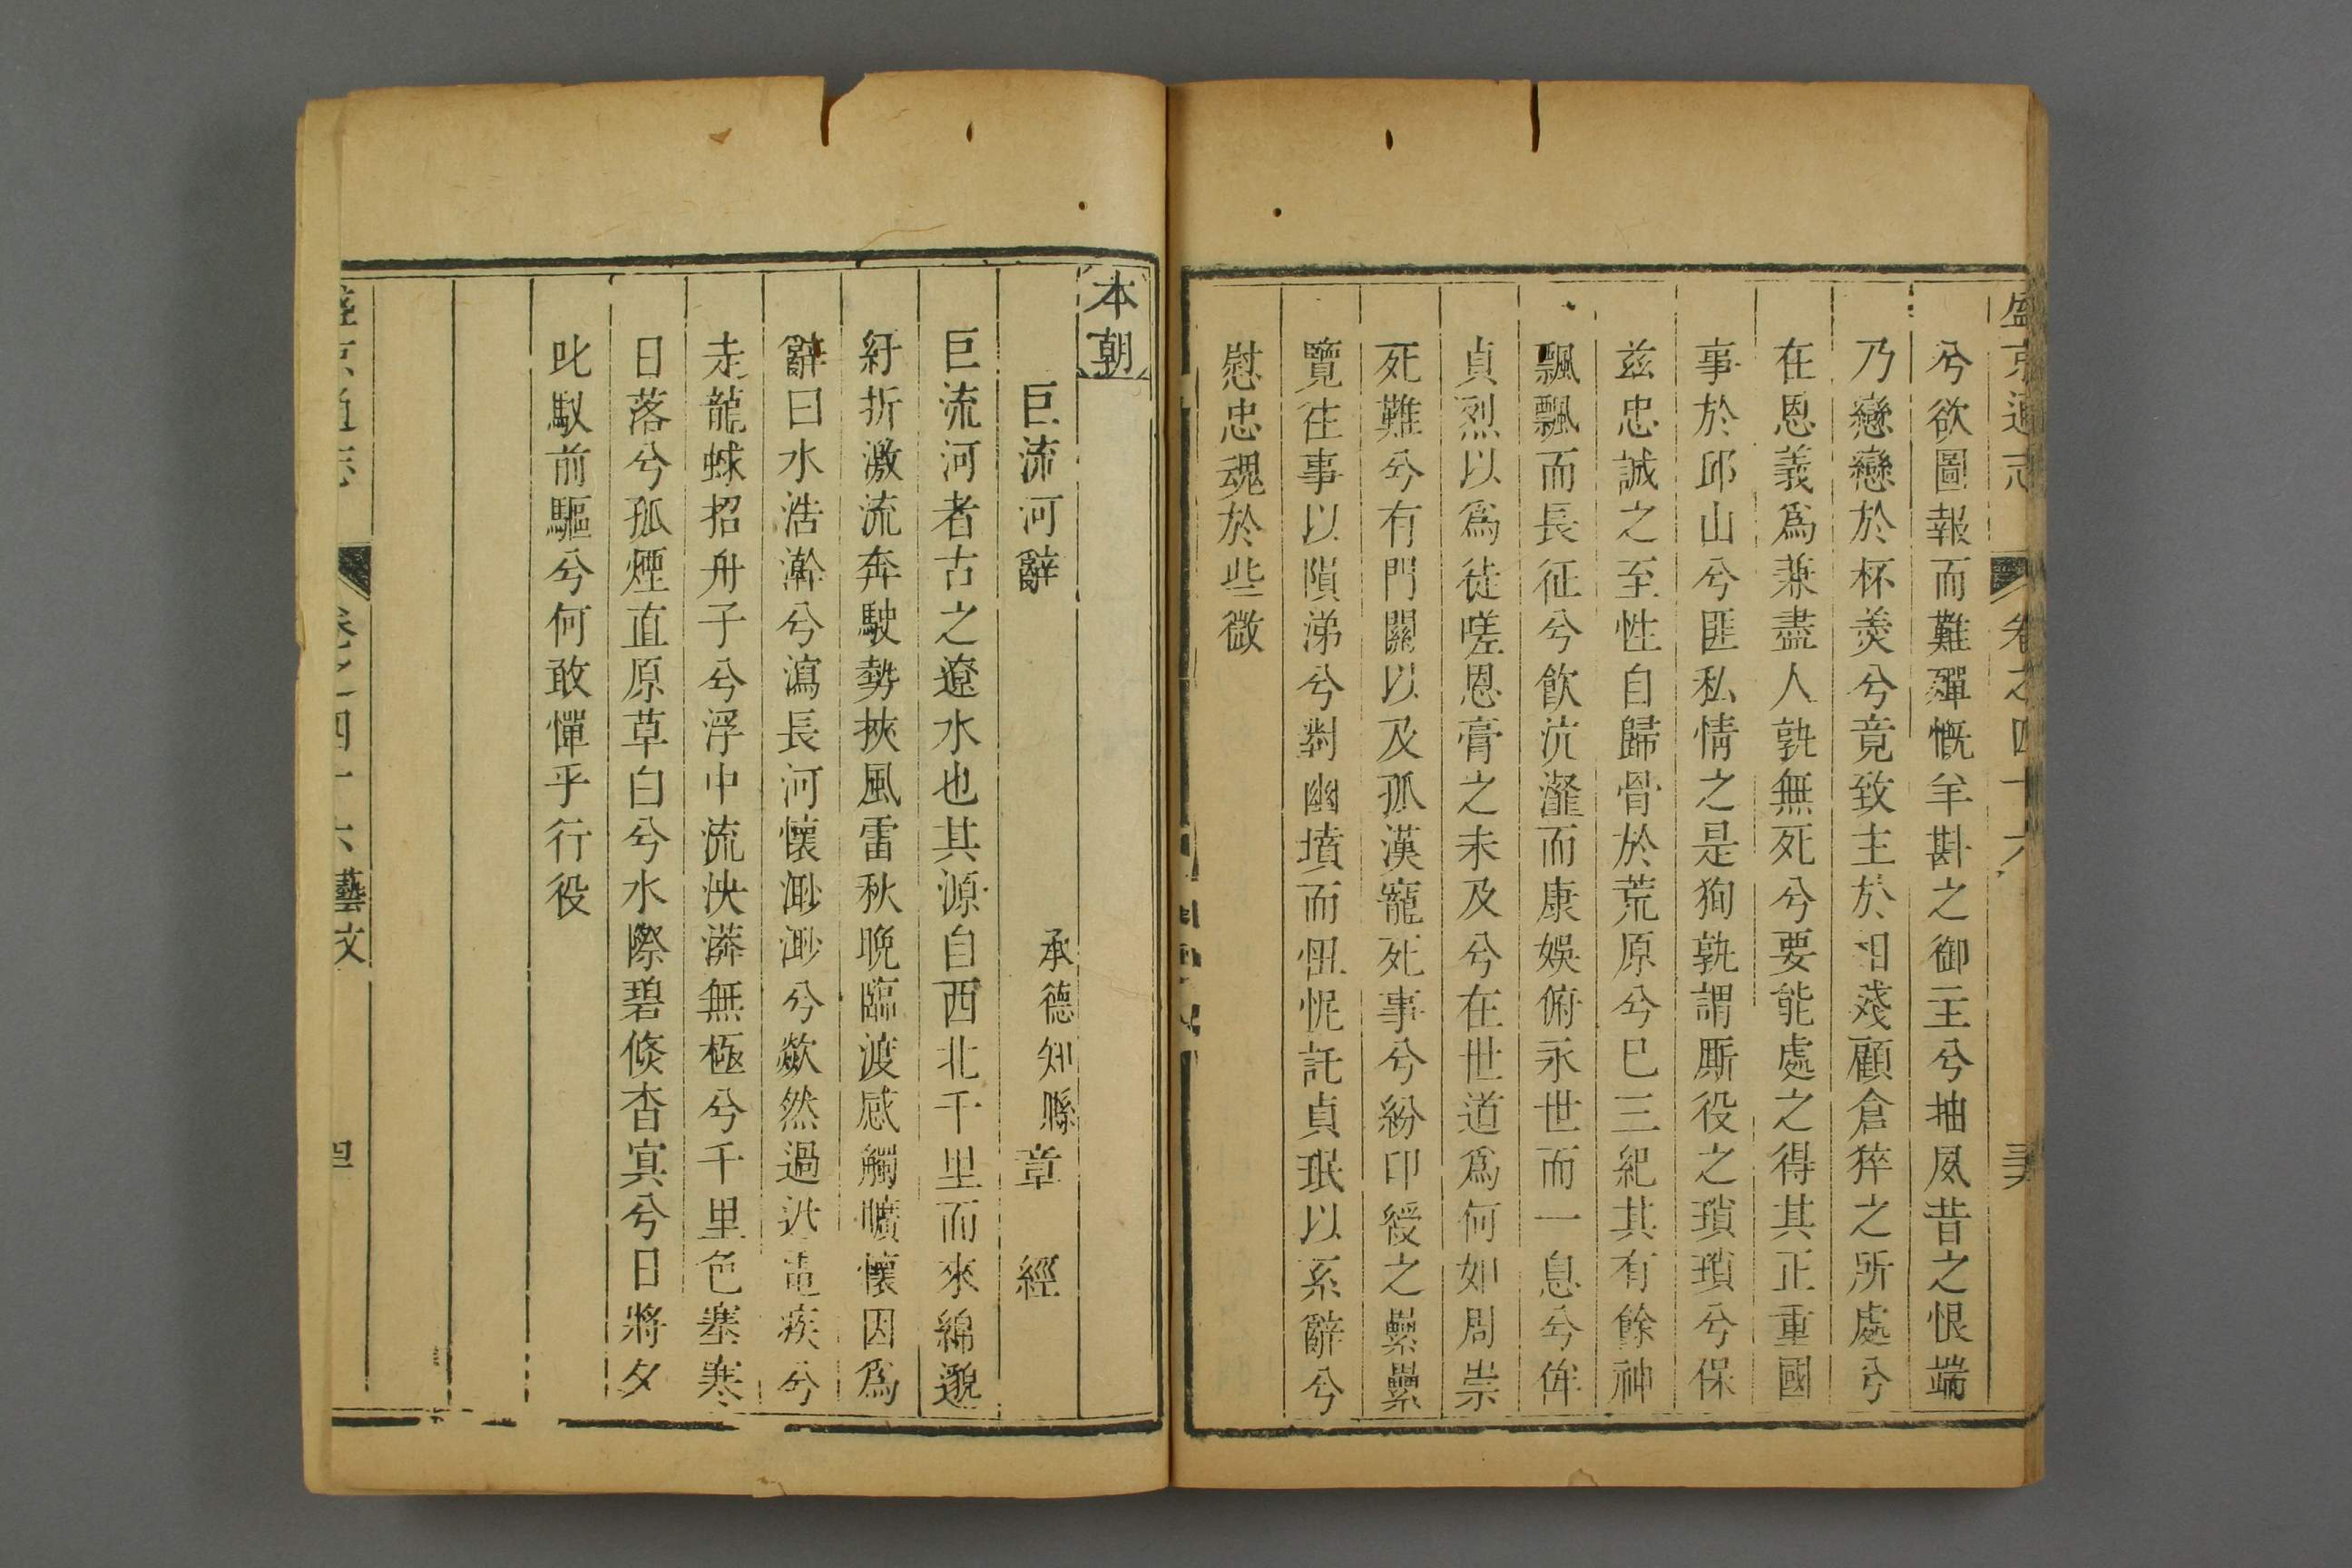 盛京通志 卷之四十六
兮欲圖報而難殫慨羊斟之御主兮抽夙昔之恨端
乃戀戀於杯羮兮竟致主於相殘顧倉猝之所處兮
在恩義爲兼盡人孰無死兮要能處之得其正重國
事於邱山兮匪私情之是狥孰謂厮役之瑣瑣兮保
兹忠誠之至性自歸骨於荒原兮已三紀其有餘神
飄飄而長征兮飲沆瀣而康娛俯永世而一息兮侔
貞烈以爲徒嗟恩膏之未及兮在世道爲何如周崇
死難兮有門關以及孤漢寵死事兮紛印綬之纍纍
覽往事以隕涕兮對幽墳而忸怩託貞珉以系辭兮
慰忠魂於些微
本朝
巨流河辭 承德知縣章 經
巨流河者古之遼水也其源自西北千里而來綿邈
紆折激流奔駛勢挾風雷秋晚臨渡感觸曠懷因爲
辭曰水浩瀚兮瀉長河懷渺渺兮歘然過迅電疾兮
走龍蛷招舟子兮浮中流泱漭無極兮千里色塞寒
日落兮孤煙直原草白兮水際碧倏杳冥兮日將夕
叱馭前驅兮何敢憚乎行役
盛京通志 卷之四十六藝文 四